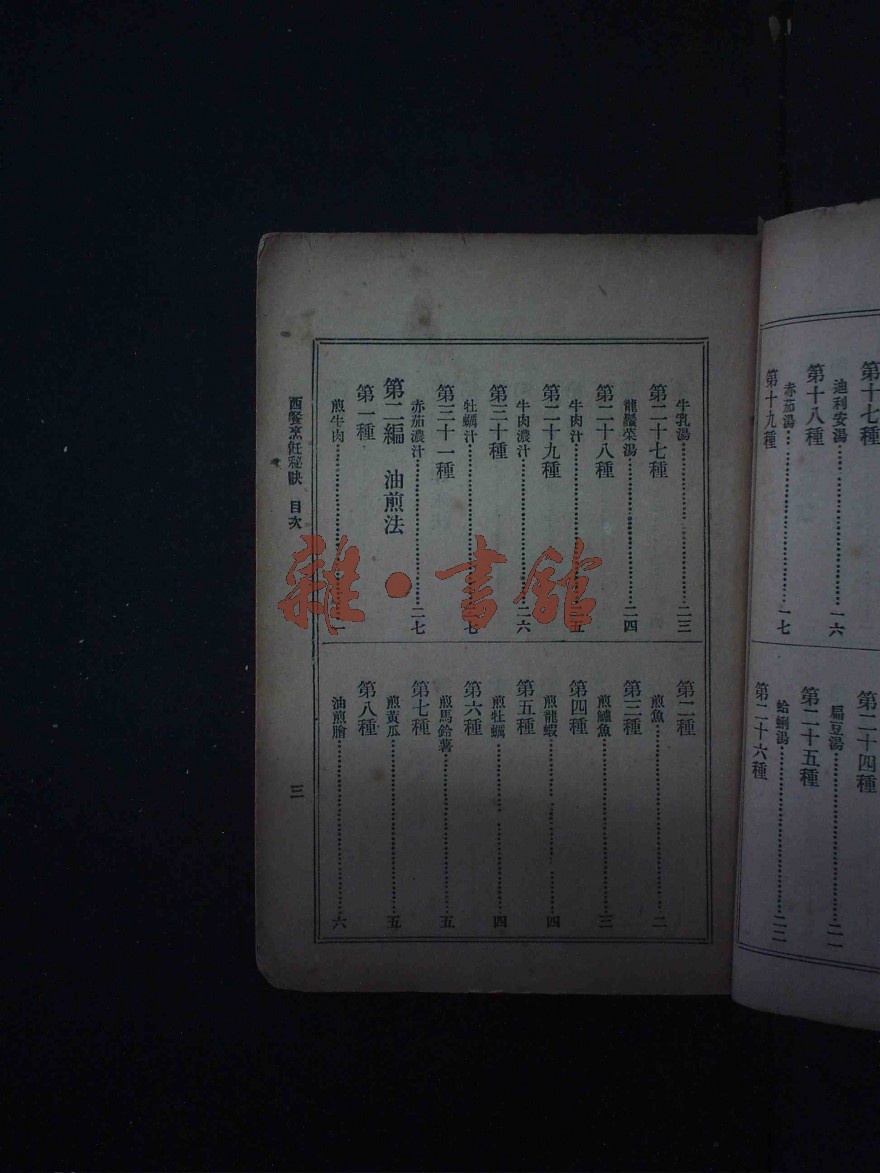 第十七種
迪利安湯 一六
第十八種
赤茄湯 一七
第十九種
第二十四種
扁豆湯 二一
第二十五種
蛤蜊湯 二二
第二十六種
牛乳湯 二三
第二十七種
龍鬚菜湯 二四
第二十八種
牛肉汁 五
第二十九種
牛肉濃汁 二六
第三十種
牡蠣汁 七
第三十一種
赤茄濃汁 二七
第二編 油煎法
第一種
煎牛肉 一
第二種
煎魚 二
第三種
煎鱸魚 三
第四種
煎龍蝦 四
第五種
煎牡蠣 四
第六種
煎馬鈴薯 五
第七種
煎黃瓜 五
第八種
油煎膾 六
西餐烹飪秘訣 目次
三
雜·書館